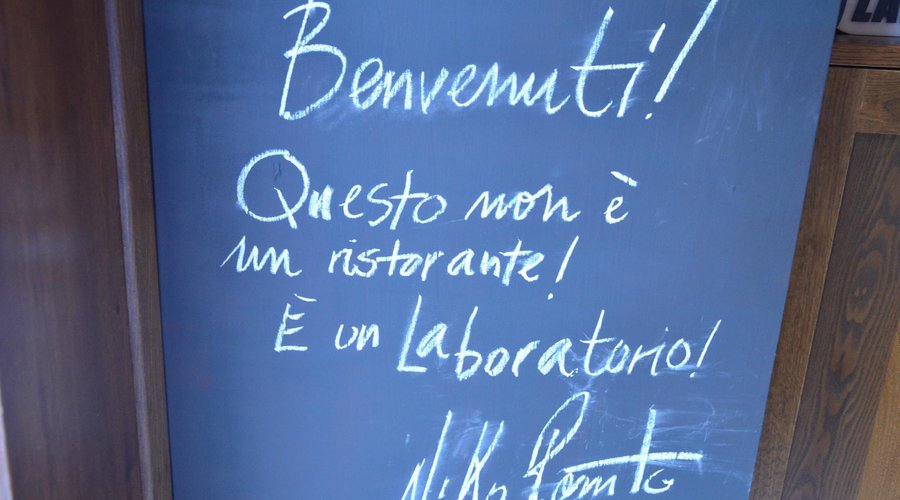 Benvenuti!
Questo non è
un ristorante!
È un Laboratorio!
Niko Romito
LA